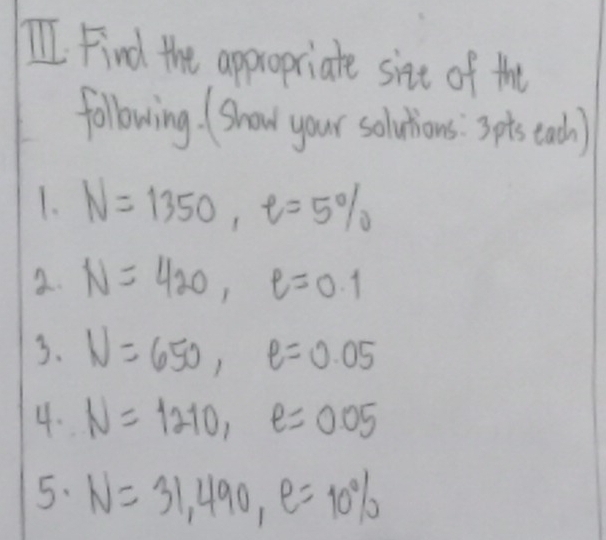 III. Find the appropriate size of the
following. (Show your solutions: 3pts each)
1. N = 1350, e = 5%
2. N = 420, e = 0.1
3. N = 650, e = 0.05
4. N = 1210, e = 0.05
5. N = 31,490, e = 10%